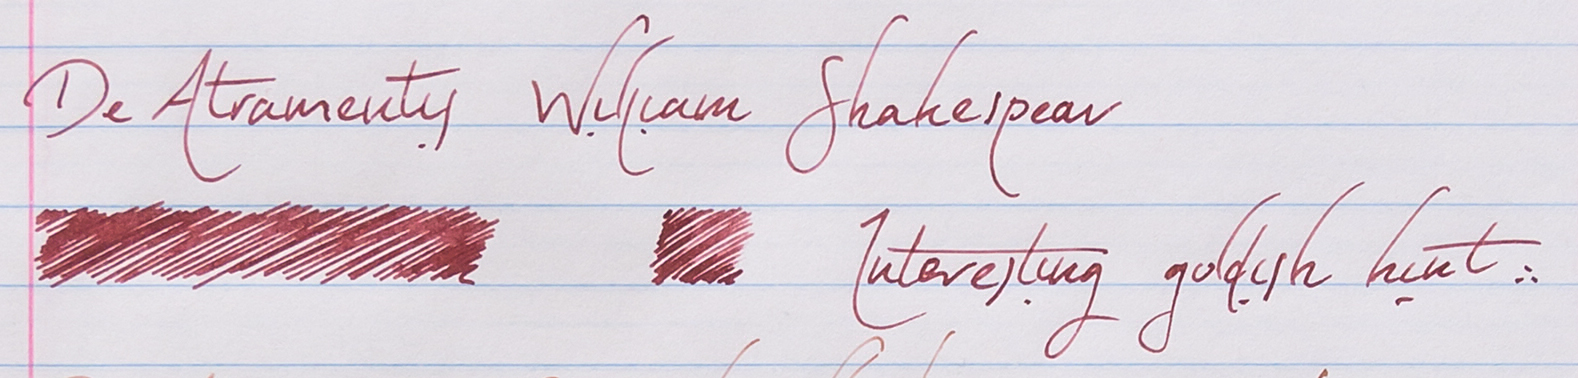 De Atramentis William Shakespear
Interesting goldish hint ∴